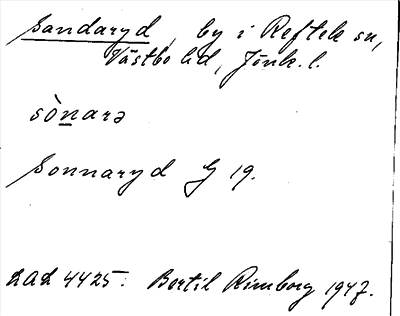 Sandaryd, by i Reftele sn,
Västbo hd, Jönk. l.
sò̱narə
Sonnaryd G 19.
LAL 4425: Bertil Rimborg 1947.